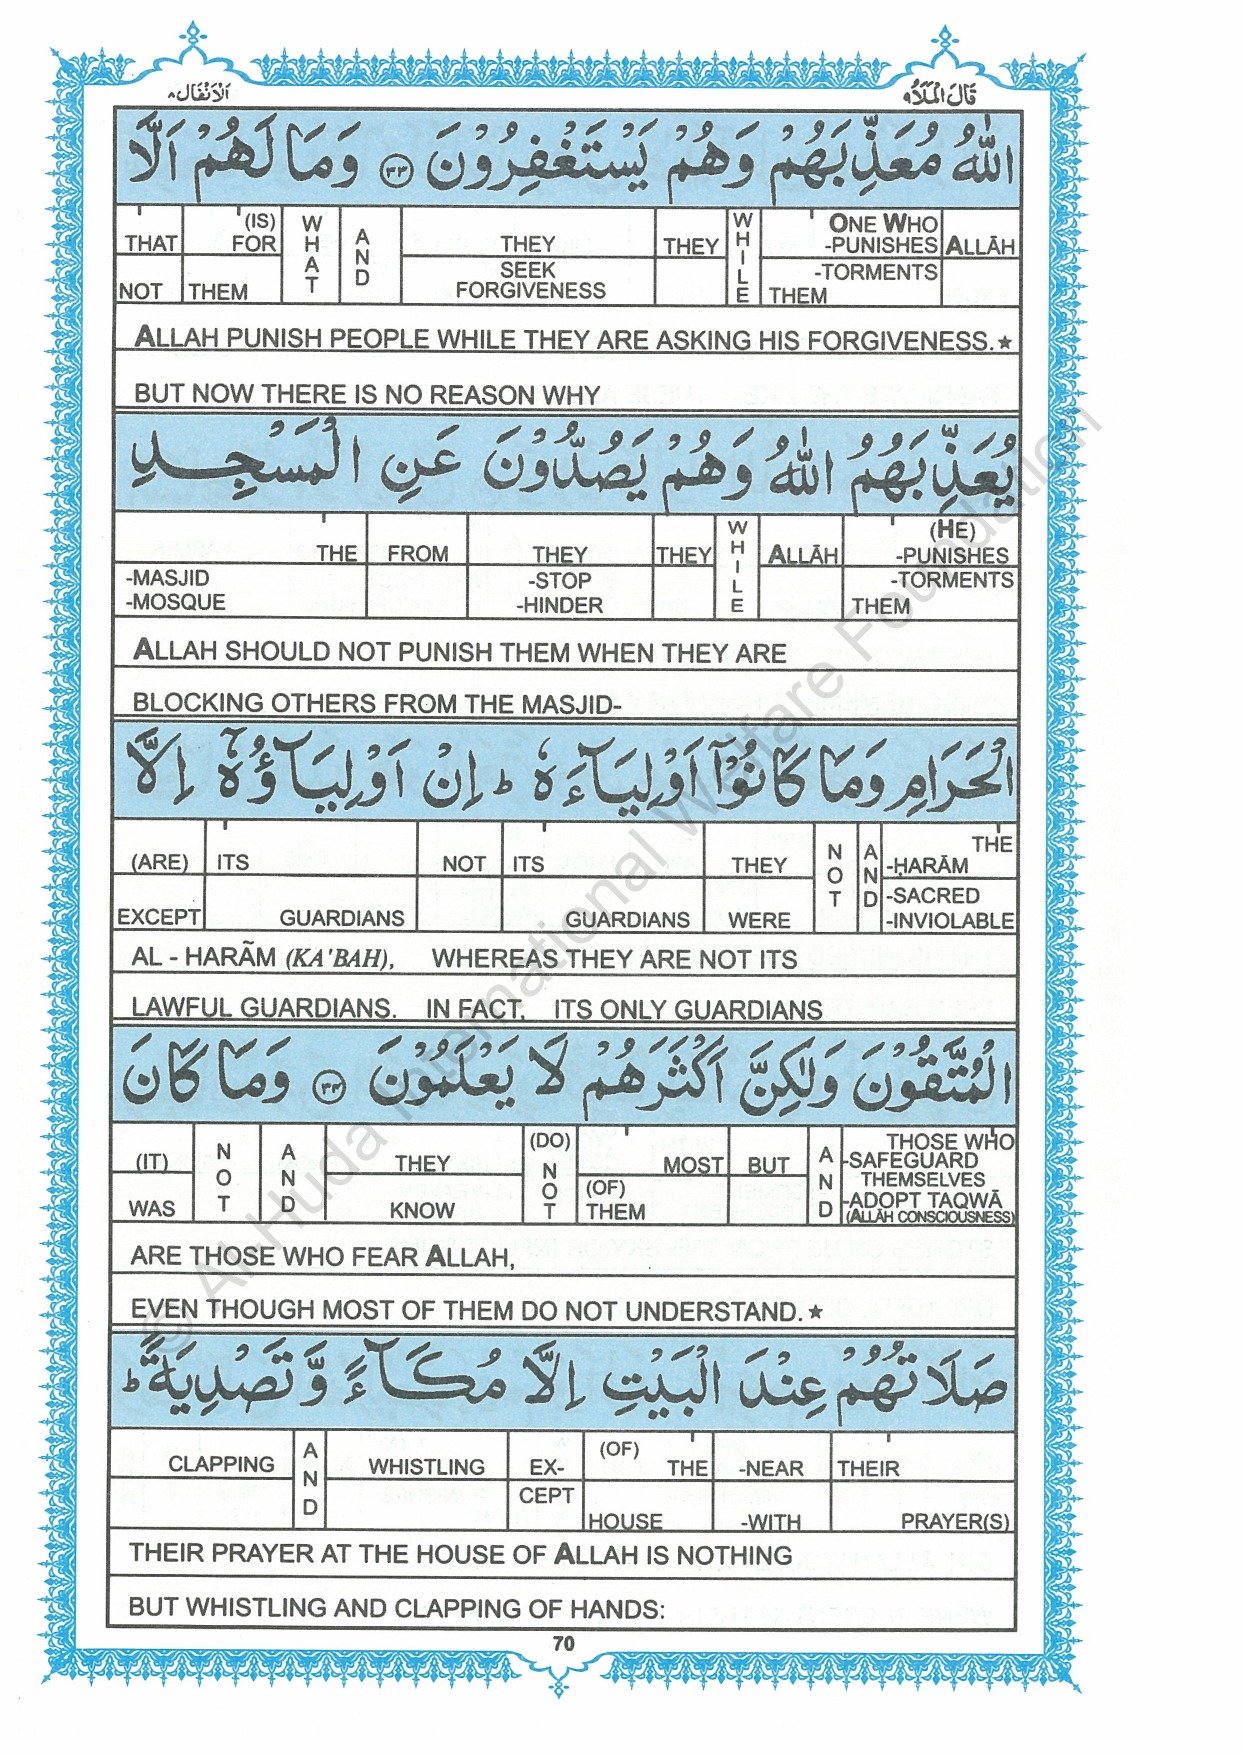 قَالَ الْمَلَأُ ٩
اَلْاَنْفَال ٨
اللّٰهُ مُعَذِّبَهُمْ وَهُمْ يَسْتَغْفِرُوْنَ ٣٣ وَمَا لَهُمْ اَلَّا
THAT (IS) FOR WHAT AND THEY THEY WHILE ONE WHO -PUNISHES ALLĀH
NOT THEM SEEK FORGIVENESS -TORMENTS THEM
ALLAH PUNISH PEOPLE WHILE THEY ARE ASKING HIS FORGIVENESS.★
BUT NOW THERE IS NO REASON WHY
يُعَذِّبَهُمُ اللّٰهُ وَهُمْ يَصُدُّوْنَ عَنِ الْمَسْجِدِ
THE FROM THEY THEY WHILE ALLĀH (HE) -PUNISHES
-MASJID -MOSQUE -STOP -HINDER -TORMENTS THEM
ALLAH SHOULD NOT PUNISH THEM WHEN THEY ARE
BLOCKING OTHERS FROM THE MASJID-
الْحَرَامِ وَمَا كَانُوْٓا اَوْلِيَآءَهٗ ؕ اِنْ اَوْلِيَآؤُهٗٓ اِلَّا
(ARE) ITS NOT ITS THEY NOT AND THE -ḤARĀM
EXCEPT GUARDIANS GUARDIANS WERE -SACRED -INVIOLABLE
AL - HARÃM (KA'BAH), WHEREAS THEY ARE NOT ITS
LAWFUL GUARDIANS. IN FACT, ITS ONLY GUARDIANS
الْمُتَّقُوْنَ وَلٰكِنَّ اَكْثَرَهُمْ لَا يَعْلَمُوْنَ ٣٤ وَمَا كَانَ
(IT) NOT AND THEY (DO) NOT MOST BUT AND THOSE WHO -SAFEGUARD THEMSELVES
WAS KNOW (OF) THEM -ADOPT TAQWĀ (ALLĀH CONSCIOUSNESS)
ARE THOSE WHO FEAR ALLAH,
EVEN THOUGH MOST OF THEM DO NOT UNDERSTAND.★
صَلَاتُهُمْ عِنْدَ الْبَيْتِ اِلَّا مُكَآءً وَّتَصْدِيَةً ؕ
CLAPPING AND WHISTLING EX- (OF) THE -NEAR THEIR
CEPT HOUSE -WITH PRAYER(S)
THEIR PRAYER AT THE HOUSE OF ALLAH IS NOTHING
BUT WHISTLING AND CLAPPING OF HANDS:
70
© Al-Huda International Welfare Foundation